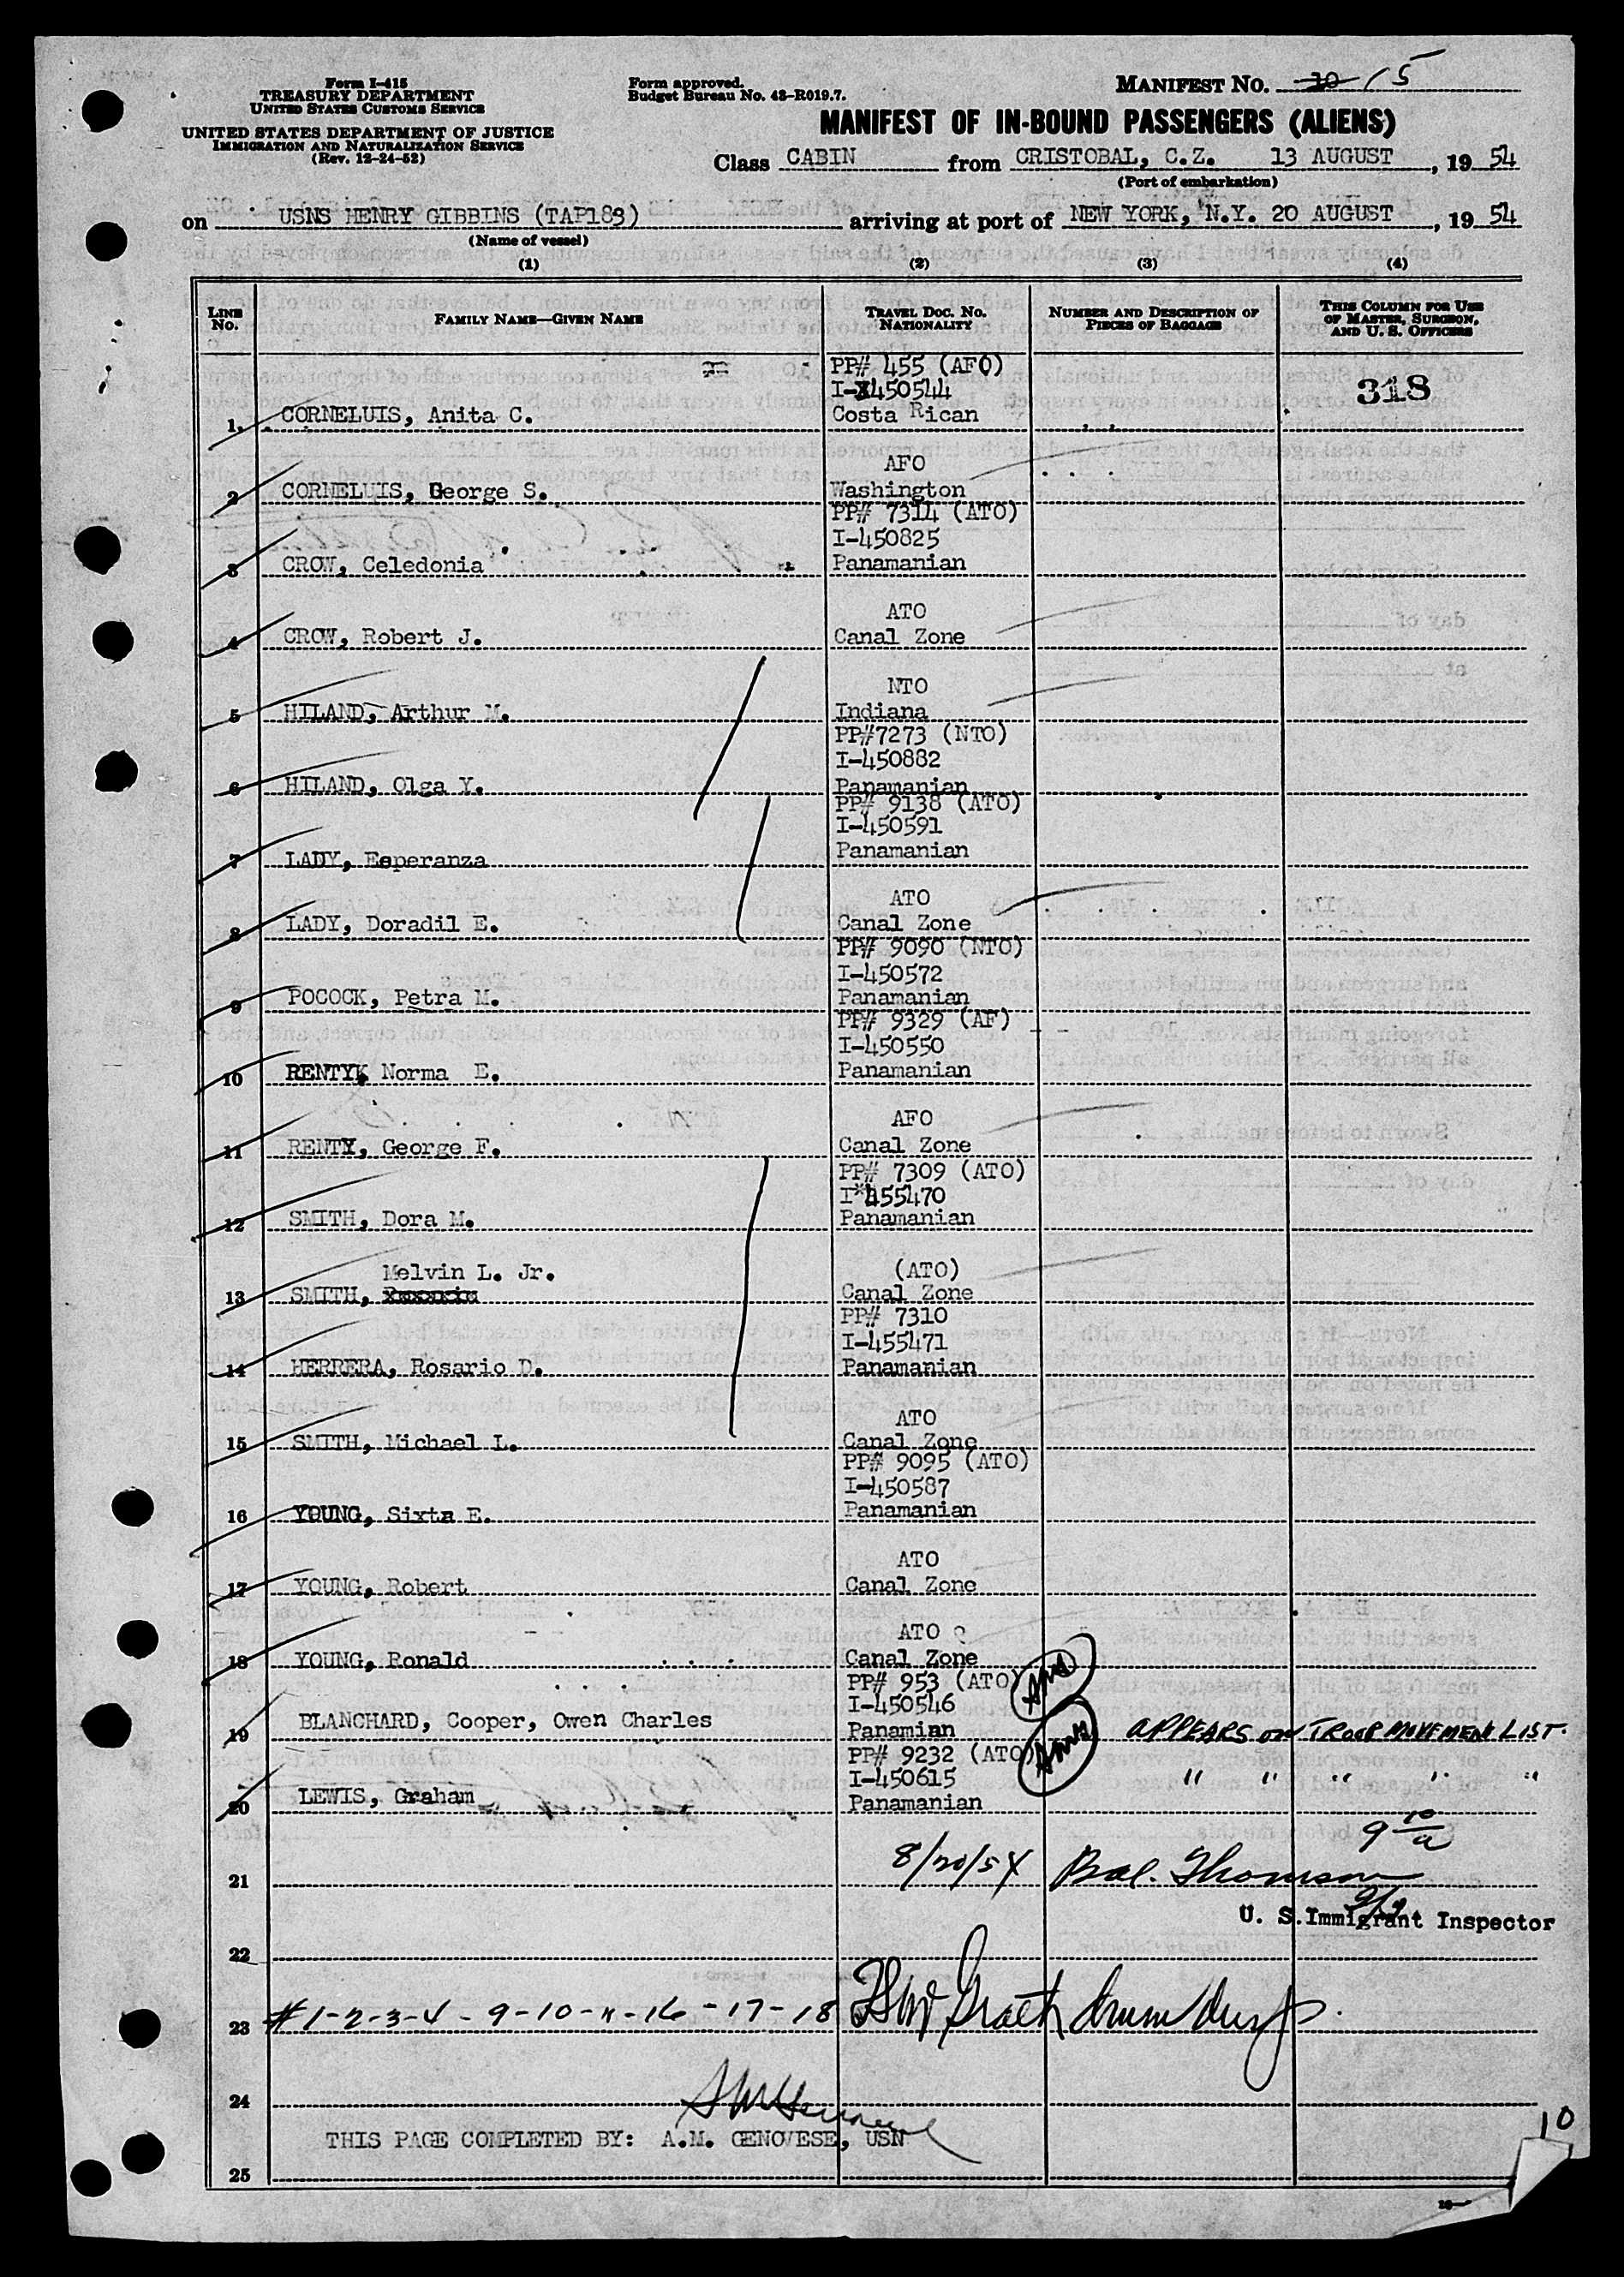 Form I-415
TREASURY DEPARTMENT
UNITED STATES CUSTOMS SERVICE
UNITED STATES DEPARTMENT OF JUSTICE
IMMIGRATION AND NATURALIZATION SERVICE
(Rev. 12-24-52)
Form approved.
Budget Bureau No. 43-R019.7.
MANIFEST NO. 10 15
MANIFEST OF IN-BOUND PASSENGERS (ALIENS)
Class CABIN from CRISTOBAL, C.Z. 13 AUGUST, 19 54
(Port of embarkation)
on USNS HENRY GIBBINS (TAP183) arriving at port of NEW YORK, N.Y. 20 AUGUST, 19 54
(Name of vessel)
(1) (2) (3) (4)
LINE NO. FAMILY NAME—GIVEN NAME TRAVEL DOC. NO. NATIONALITY NUMBER AND DESCRIPTION OF PIECES OF BAGGAGE THIS COLUMN FOR USE OF MASTER, SURGEON, AND U. S. OFFICERS
PP# 455 (AFO)
I-450544 318
1. CORNELUIS, Anita C. Costa Rican
AFO
2 CORNELUIS, George S. Washington
PP# 7314 (ATO)
I-450825
3 CROW, Celedonia Panamanian
ATO
4 CROW, Robert J. Canal Zone
NTO
5 HILAND, Arthur M. Indiana
PP#7273 (NTO)
I-450882
6 HILAND, Olga Y. Panamanian
PP# 9138 (ATO)
I-450591
7 LADY, Esperanza Panamanian
ATO
8 LADY, Doradil E. Canal Zone
PP# 9090 (NTO)
I-450572
9 POCOCK, Petra M. Panamanian
PP# 9329 (AF)
I-450550
10 RENTY, Norma E. Panamanian
AFO
11 RENTY, George F. Canal Zone
PP# 7309 (ATO)
I*455470
12 SMITH, Dora M. Panamanian
Melvin L. Jr. (ATO)
13 SMITH, Canal Zone
PP# 7310
I-455471
14 HERRERA, Rosario D. Panamanian
ATO
15 SMITH, Michael L. Canal Zone
PP# 9095 (ATO)
I-450587
16 YOUNG, Sixta E. Panamanian
ATO
17 YOUNG, Robert Canal Zone
ATO
18 YOUNG, Ronald Canal Zone
PP# 953 (ATO)
I-450546
19 BLANCHARD, Cooper, Owen Charles Panamian APPEARS ON TROOP MOVEMENT LIST.
PP# 9232 (ATO)
I-450615 " " " " "
20 LEWIS, Graham Panamanian
9 10/a
21 8/20/54 Thomson
U. S. Immigrant Inspector
22
23 #1-2-3-4-9-10-11-16-17-18
24
THIS PAGE COMPLETED BY: A.M. GENOVESE, USN
25
10